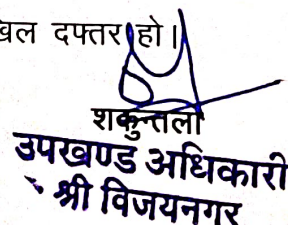 दफ्तर हो।
शकुन्तला
उपखण्ड अधिकारी
श्री विजयनगर